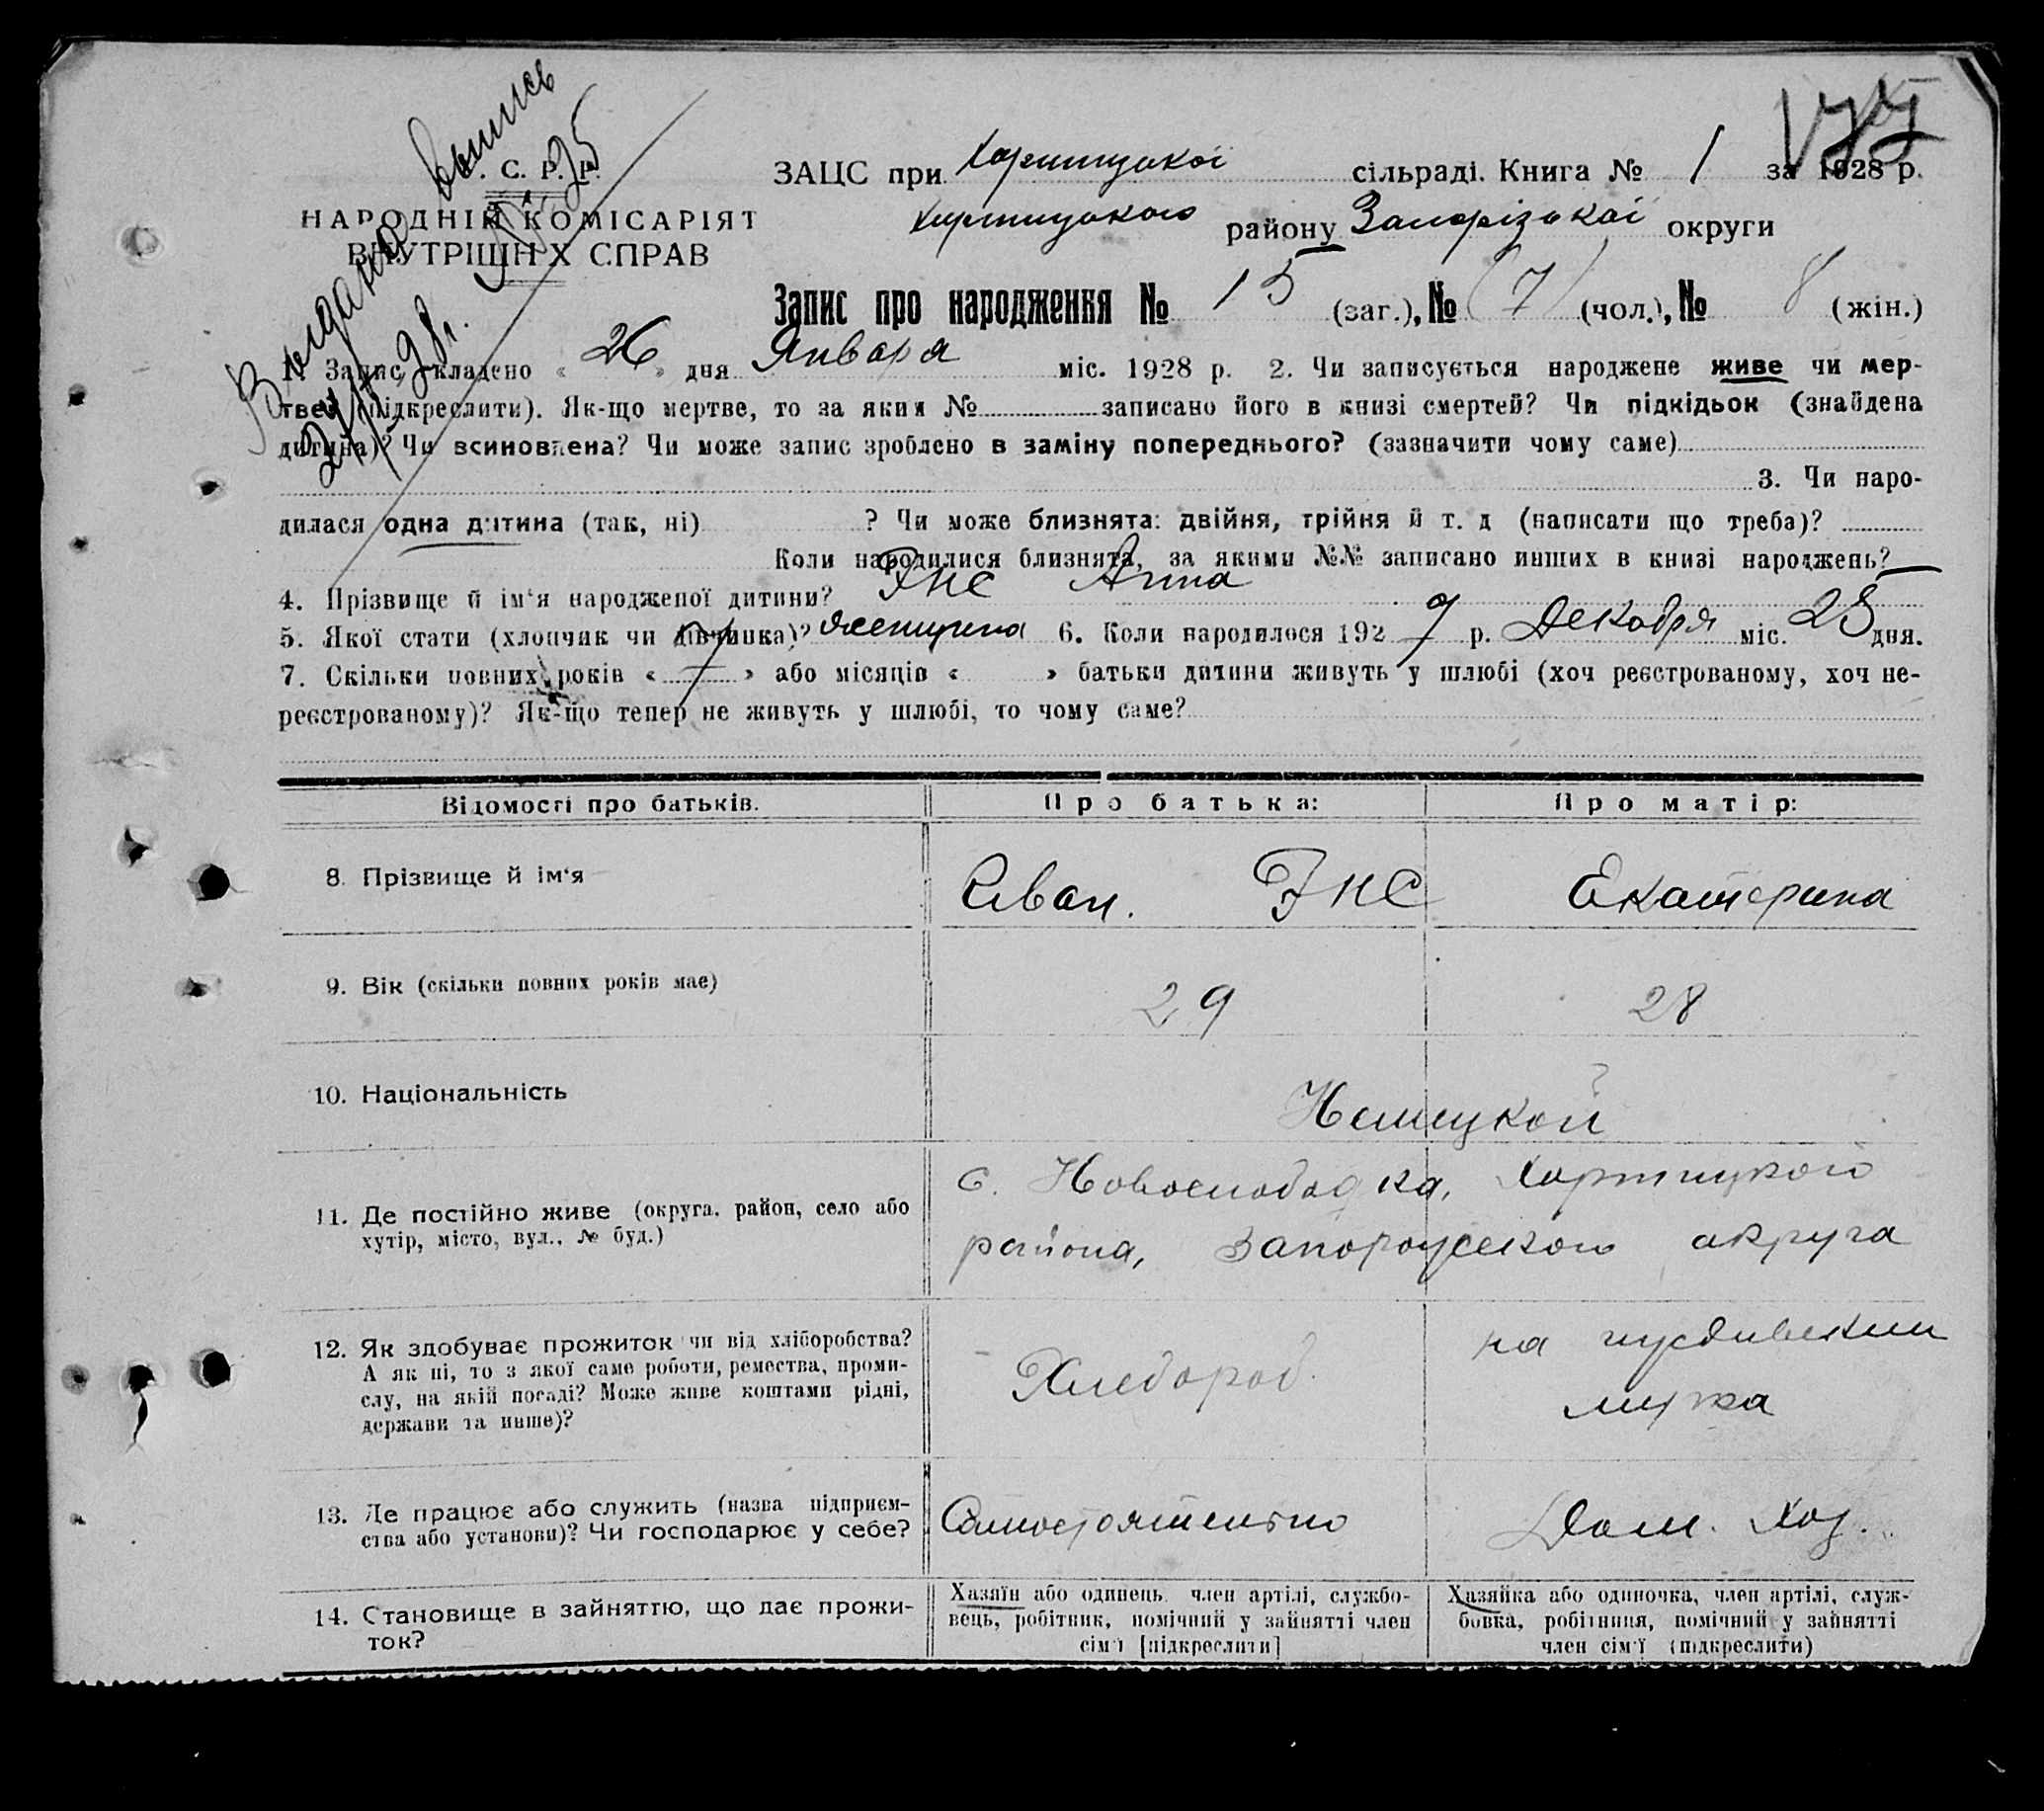 Выдана выпись
У. С. Р. Р.
НАРОДНІЙ КОМІСАРІЯТ
ВНУТРІШНІХ СПРАВ
ЗАЦС при Хортицької сільраді. Книга № 1 за 1928 р.
Хортицького району Запорізької округи
Запис про народження № 15 (заг.), № (7) (чол.), № 8 (жін.)
1. Запис складено « 26 » дня Января міс. 1928 р. 2. Чи записується народжене живе чи мер-
тве (підкреслити). Як-що мертве, то за яким № записано його в книзі смертей? Чи підкідьок (знайдена
дитина)? Чи всиновлена? Чи може запис зроблено в заміну попереднього? (зазначити чому саме)
3. Чи наро-
дилася одна дитина (так, ні) ? Чи може близнята: двійня, трійня й т. д (написати що треба)?
Коли народилися близнята, за якими №№ записано инших в книзі народжень?
4. Прізвище й ім‘я народженої дитини? Энс Анна
5. Якої стати (хлопчик чи дівчинка)? женщина 6. Коли народилося 192 7 р. Декабря міс. 25 дня.
7. Скільки повних років « » або місяців « » батьки дитини живуть у шлюбі (хоч реєстрованому, хоч не-
реєстрованому)? Як-що тепер не живуть у шлюбі, то чому саме?
Відомості про батьків. Про батька: Про матір:
8. Прізвище й ім‘я Иван. Энс Екатерина
9. Вік (скільки повних років має) 29 28
10. Національність Немецкой
11. Де постійно живе (округа, район, село або
хутір, місто, вул., № буд.)
с. Новослободка, Хортицкого
района, Запорожского округа
12. Як здобуває прожиток чи від хліборобства?
А як ні, то з якої саме роботи, ремества, проми-
слу, на якій посаді? Може живе коштами рідні,
держави та инше)?
Хлебороб.
на иждивении
мужа
13. Де працює або служить (назва підприєм-
ства або установи)? Чи господарює у себе?
Самостоятельно
Дом. Хоз.
14. Становище в зайняттю, що дає прожи-
ток?
Хазяїн або одинець, член артілі, службо-
вець, робітник, помічний у зайнятті член
сім‘ї [підкреслити]
Хазяйка або одиночка, член артілі, служ-
бовка, робітниця, помічний у зайнятті
член сім‘ї (підкреслити)